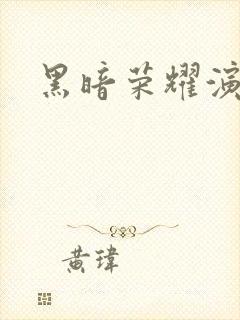 黑暗荣耀演
黄玮